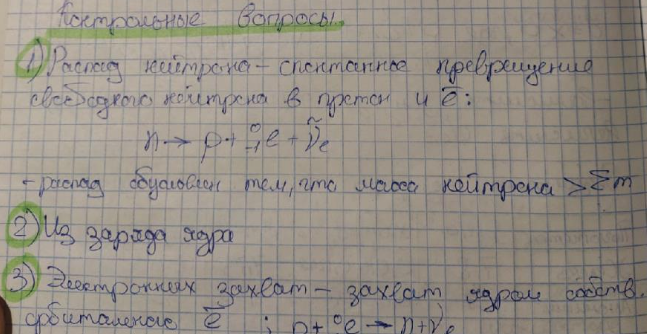 Контрольные вопросы.
1) Распад нейтрона – спонтанное превращение
свободного нейтрона в протон и e̅:
n → p + ⁰₋₁e + ν̃e
– распад обусловлен тем, что масса нейтрона > Σm
2) Из заряда ядра
3) Электронных захват – захват ядром собств.
орбитального e̅ ; p + ⁰e → n + νe